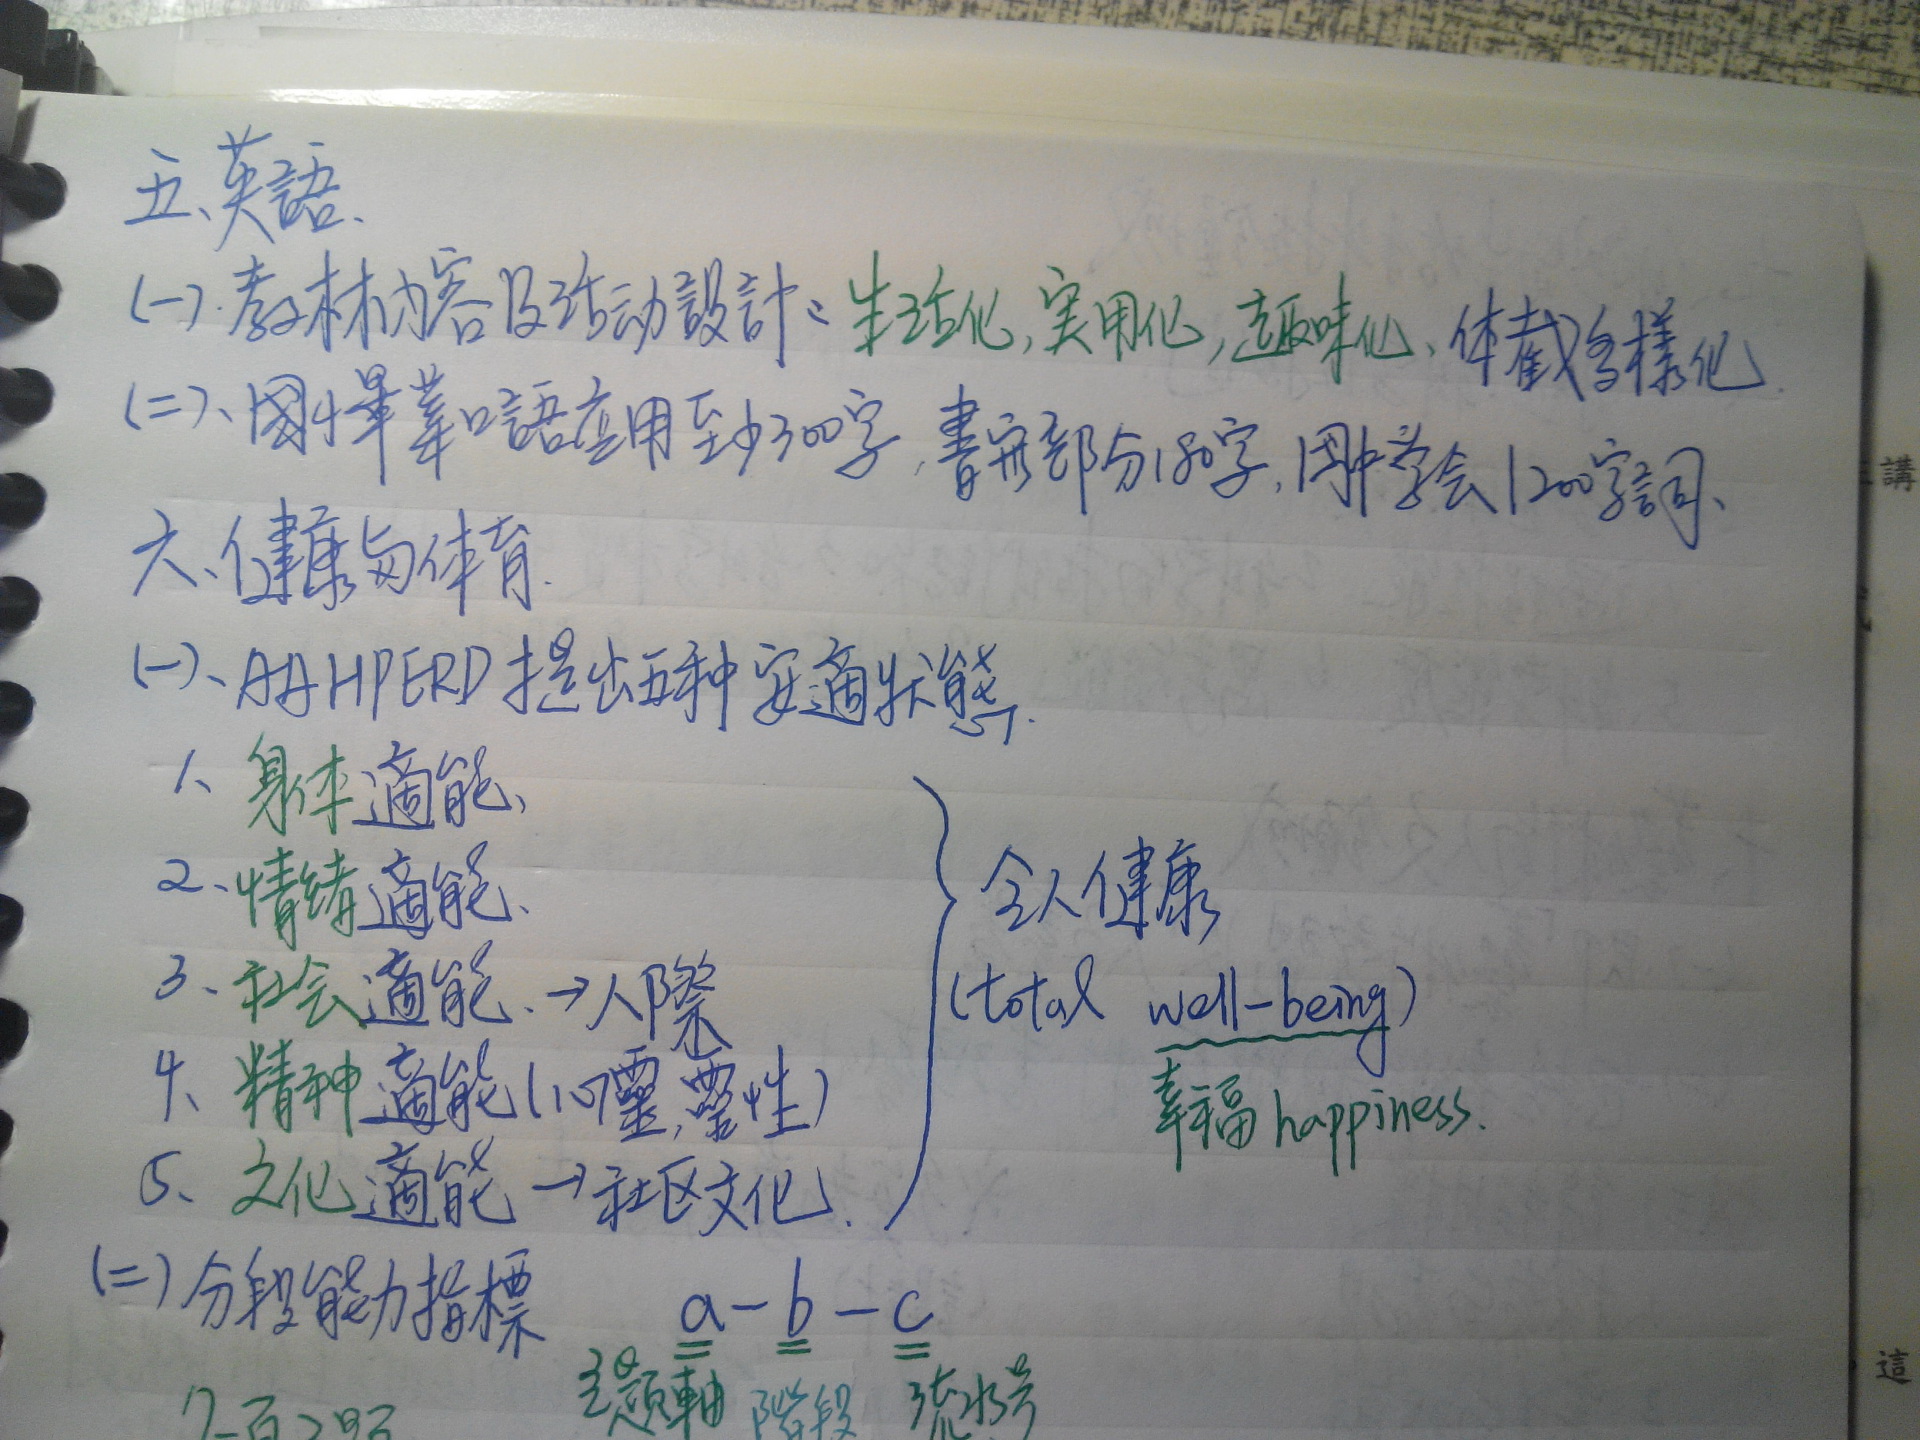 五、英語、
(一)、教材內容及活动設計：生活化，实用化，趣味化、体裁多樣化.
(二)、國小畢業口語应用至少300字，書寫部分180字，国中学会1200字詞、
六、健康与体育.
(一)、AAHPERD 提出五种安適狀態.
1、身体適能、
2、情绪適能、
3、社会適能、→人際
4、精神適能(心靈,靈性)
5、文化適能 →社区文化.
全人健康
(total well-being)
幸福 happiness.
(二)分段能力指標 a-b-c
主題軸 階段 流水号
講
這